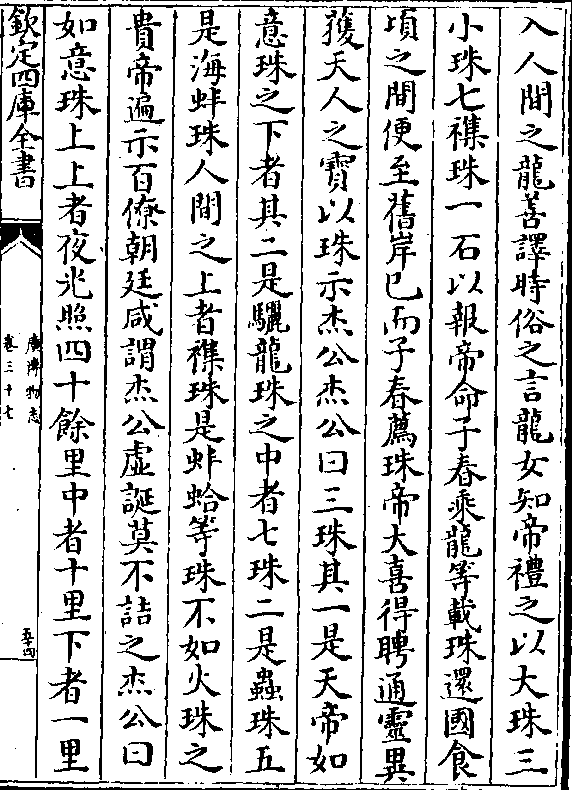 入人間之龍善譯時俗之言龍女知帝禮之以大珠三
小珠七襍珠一石以報帝命子春乘龍等載珠還國食
頃之間便至舊岸已而子春薦珠帝大喜得聘通靈異
獲天人之寶以珠示杰公杰公曰三珠其一是天帝如
意珠之下者其二是驪龍珠之中者七珠二是蟲珠五
是海蚌珠人間之上者襍珠是蚌蛤等珠不如火珠之
貴帝遍示百僚朝廷咸謂杰公虛誕莫不詰之杰公曰
如意珠上上者夜光照四十餘里中者十里下者一里
欽定四庫全書
廣博物志
卷三十七
五十四